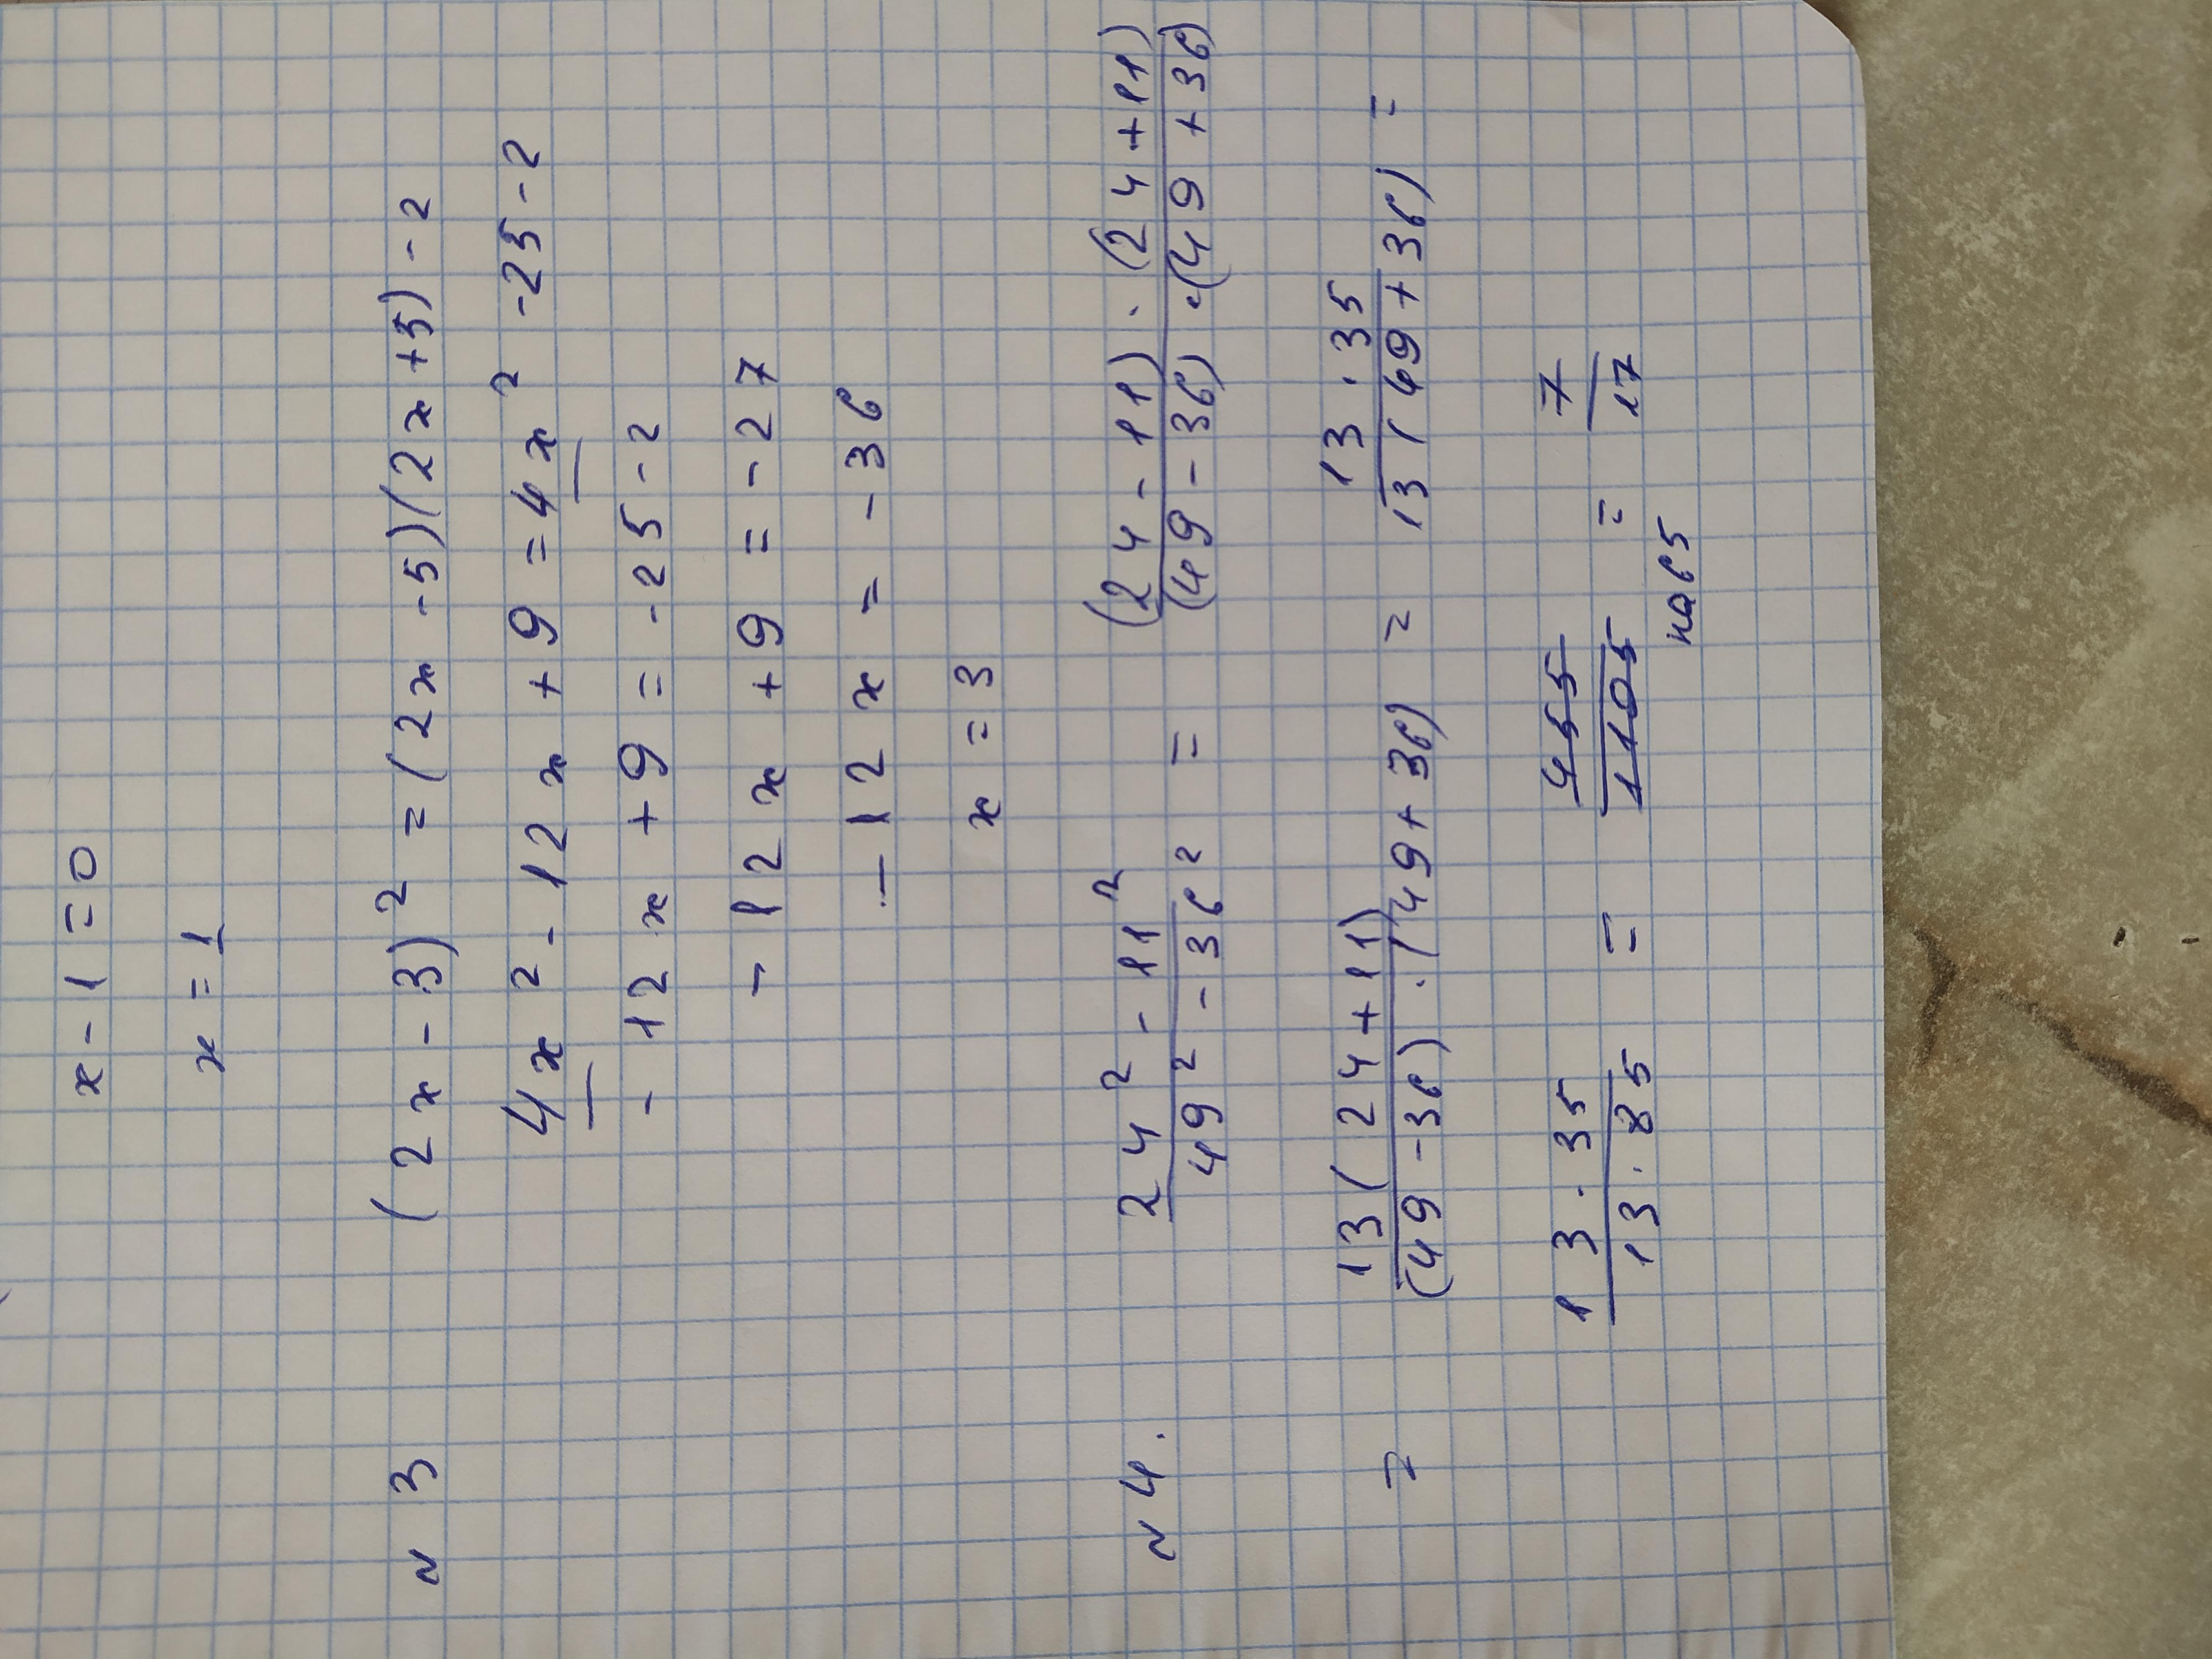 x - 1 = 0
x = 1
N 3 (2x - 3)² = (2x - 5)(2x + 5) - 2
4x² - 12x + 9 = 4x² - 25 - 2
- 12x + 9 = - 25 - 2
- 12x + 9 = - 27
- 12x = - 36
x = 3
N 4. (24² - 11²)/(49² - 36²) = ((24 - 11) · (24 + 11))/((49 - 36) · (49 + 36))
= (13(24 + 11))/((49 - 36) · (49 + 36)) = (13 · 35)/(13(49 + 36)) =
(13 · 35)/(13 · 85) = 455/1105 = 7/17
на 65